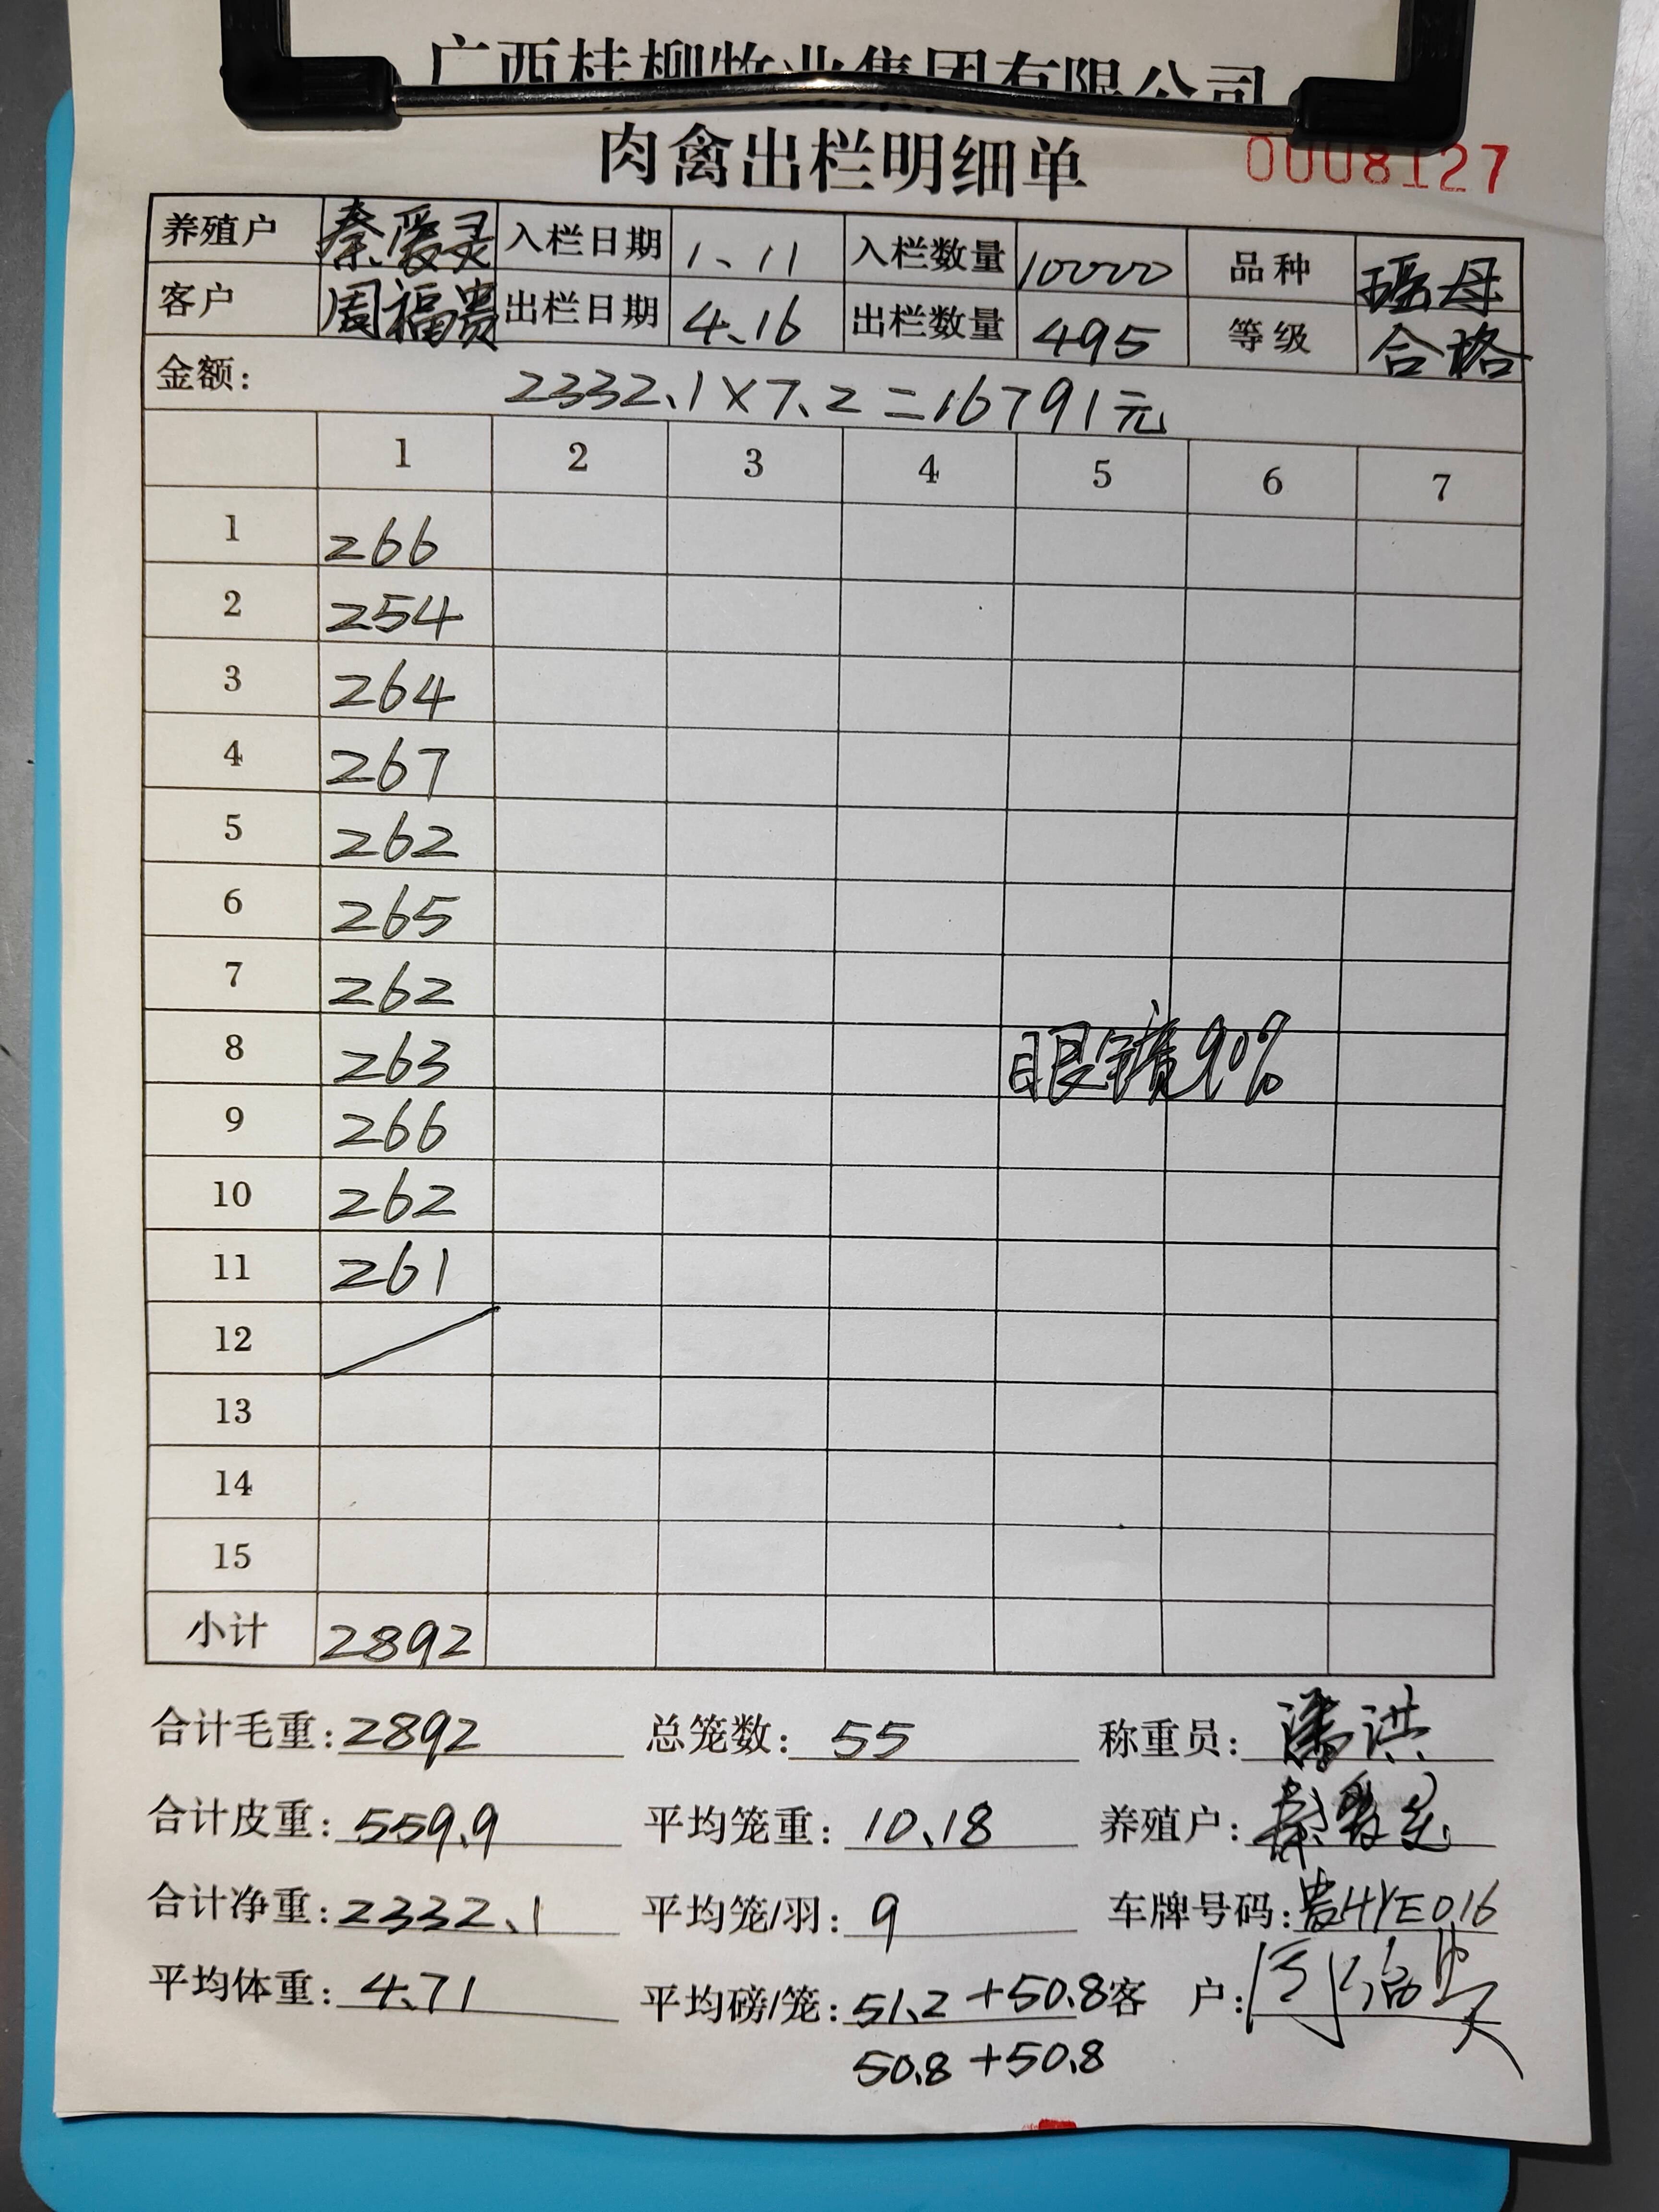 广西桂柳牧业集团有限公司
肉禽出栏明细单
0008127
养殖户 秦爱灵 入栏日期 1、11 入栏数量 10000 品种 瑶母
客户 周福贵 出栏日期 4、16 出栏数量 495 等级 合格
金额: 2332、1×7、2=16791元
1 2 3 4 5 6 7
1 266
2 254
3 264
4 267
5 262
6 265
7 262
8 263 眼镜90%
9 266
10 262
11 261
12
13
14
15
小计 2892
合计毛重: 2892 总笼数: 55 称重员: 潘洪
合计皮重: 559、9 平均笼重: 10、18 养殖户: 秦爱灵
合计净重: 2332、1 平均笼/羽: 9 车牌号码: 贵HYE016
平均体重: 4、71 平均磅/笼: 51、2+50、8 客户: 周福贵
50、8+50、8